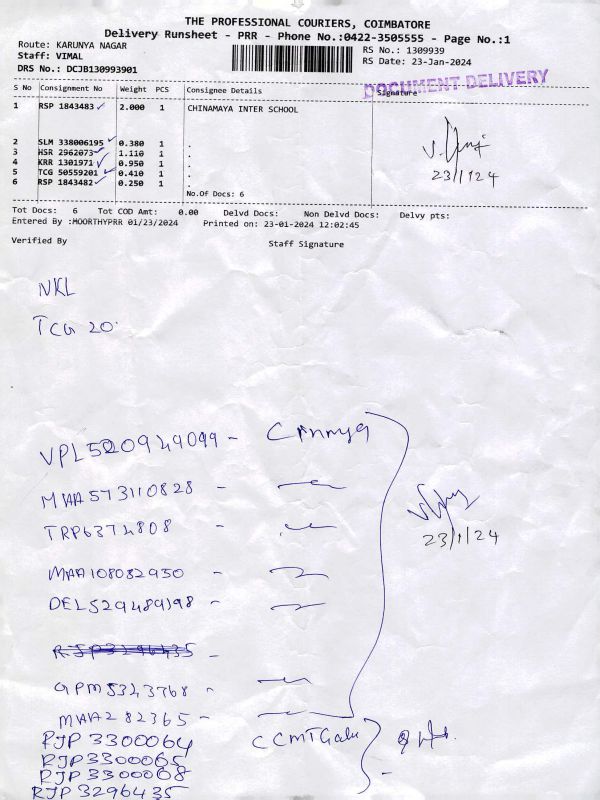 THE PROFESSIONAL COURIERS, COIMBATORE
Delivery Runsheet - PRR - Phone No.:0422-3505555 - Page No.:1
Route: KARUNYA NAGAR
RS No.: 1309939
Staff: VIMAL
RS Date: 23-Jan-2024
DRS No.: DCJB130993901
DOCUMENT DELIVERY
S No Consignment No Weight PCS Consignee Details Signature
1 RSP 1843483 2.000 1 CHINAMAYA INTER SCHOOL
2 SLM 338006195 0.380 1 .
3 HSR 2962073 1.110 1 .
4 KRR 1301971 0.950 1 .
5 TCG 50559201 0.410 1 .
6 RSP 1843482 0.250 1 .
23/1/24
No.Of Docs: 6
Tot Docs: 6 Tot COD Amt: 0.00 Delvd Docs: Non Delvd Docs: Delvy pts:
Entered By :MOORTHYPRR 01/23/2024 Printed on: 23-01-2024 12:02:45
Verified By Staff Signature
NKL
TCG 20
VPL520949099 -
MAA573110828 -
TRP6374808 -
23/1/24
MAA108082950 -
DEL529489198 -
RJP3296435 -
GPM5343768 -
MAA282365 -
RJP 3300064
RJP3300065
RJP3300068
RJP 3296435